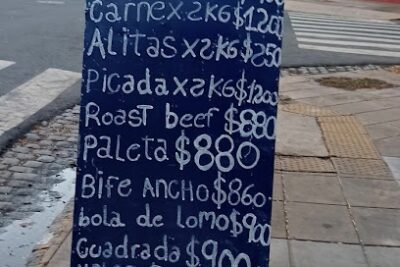 Carne x 2 KG $1200
Alitas x 2 KG $250
Picada x 2 KG $1200
Roast beef $880
Paleta $880
Bife ANCHO $860
bola de lomo $900
Cuadrada $900